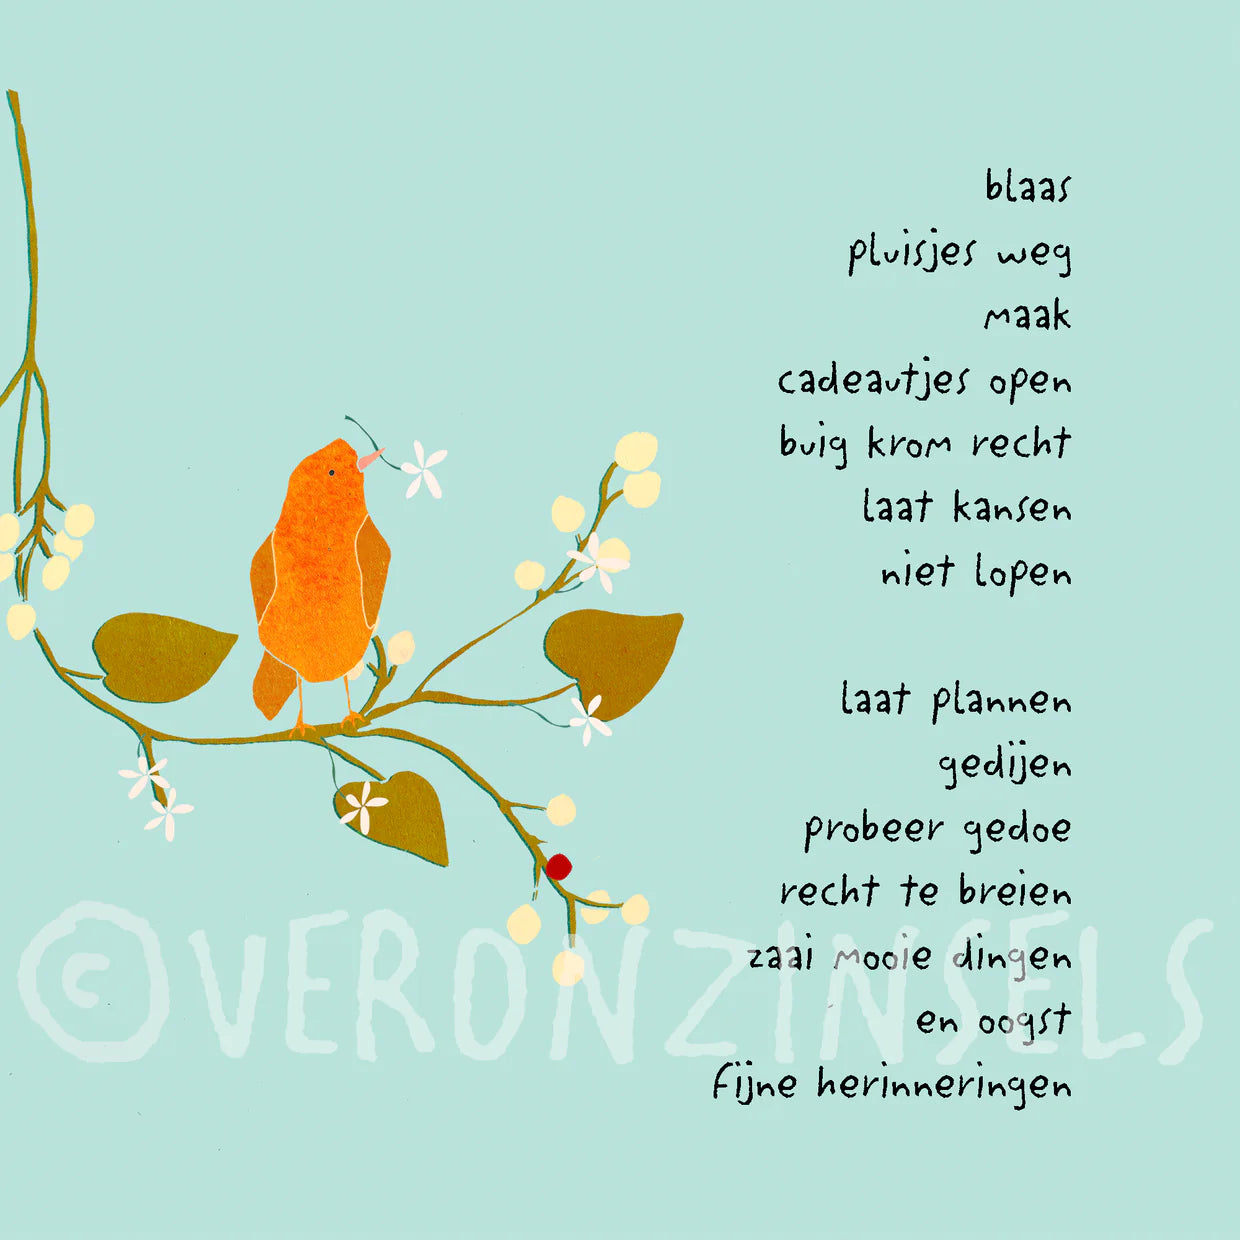 blaas
pluisjes weg
maak
cadeautjes open
buig krom recht
laat kansen
niet lopen
laat plannen
gedijen
probeer gedoe
recht te breien
zaai mooie dingen
en oogst
fijne herinneringen
©VERONZINSELS